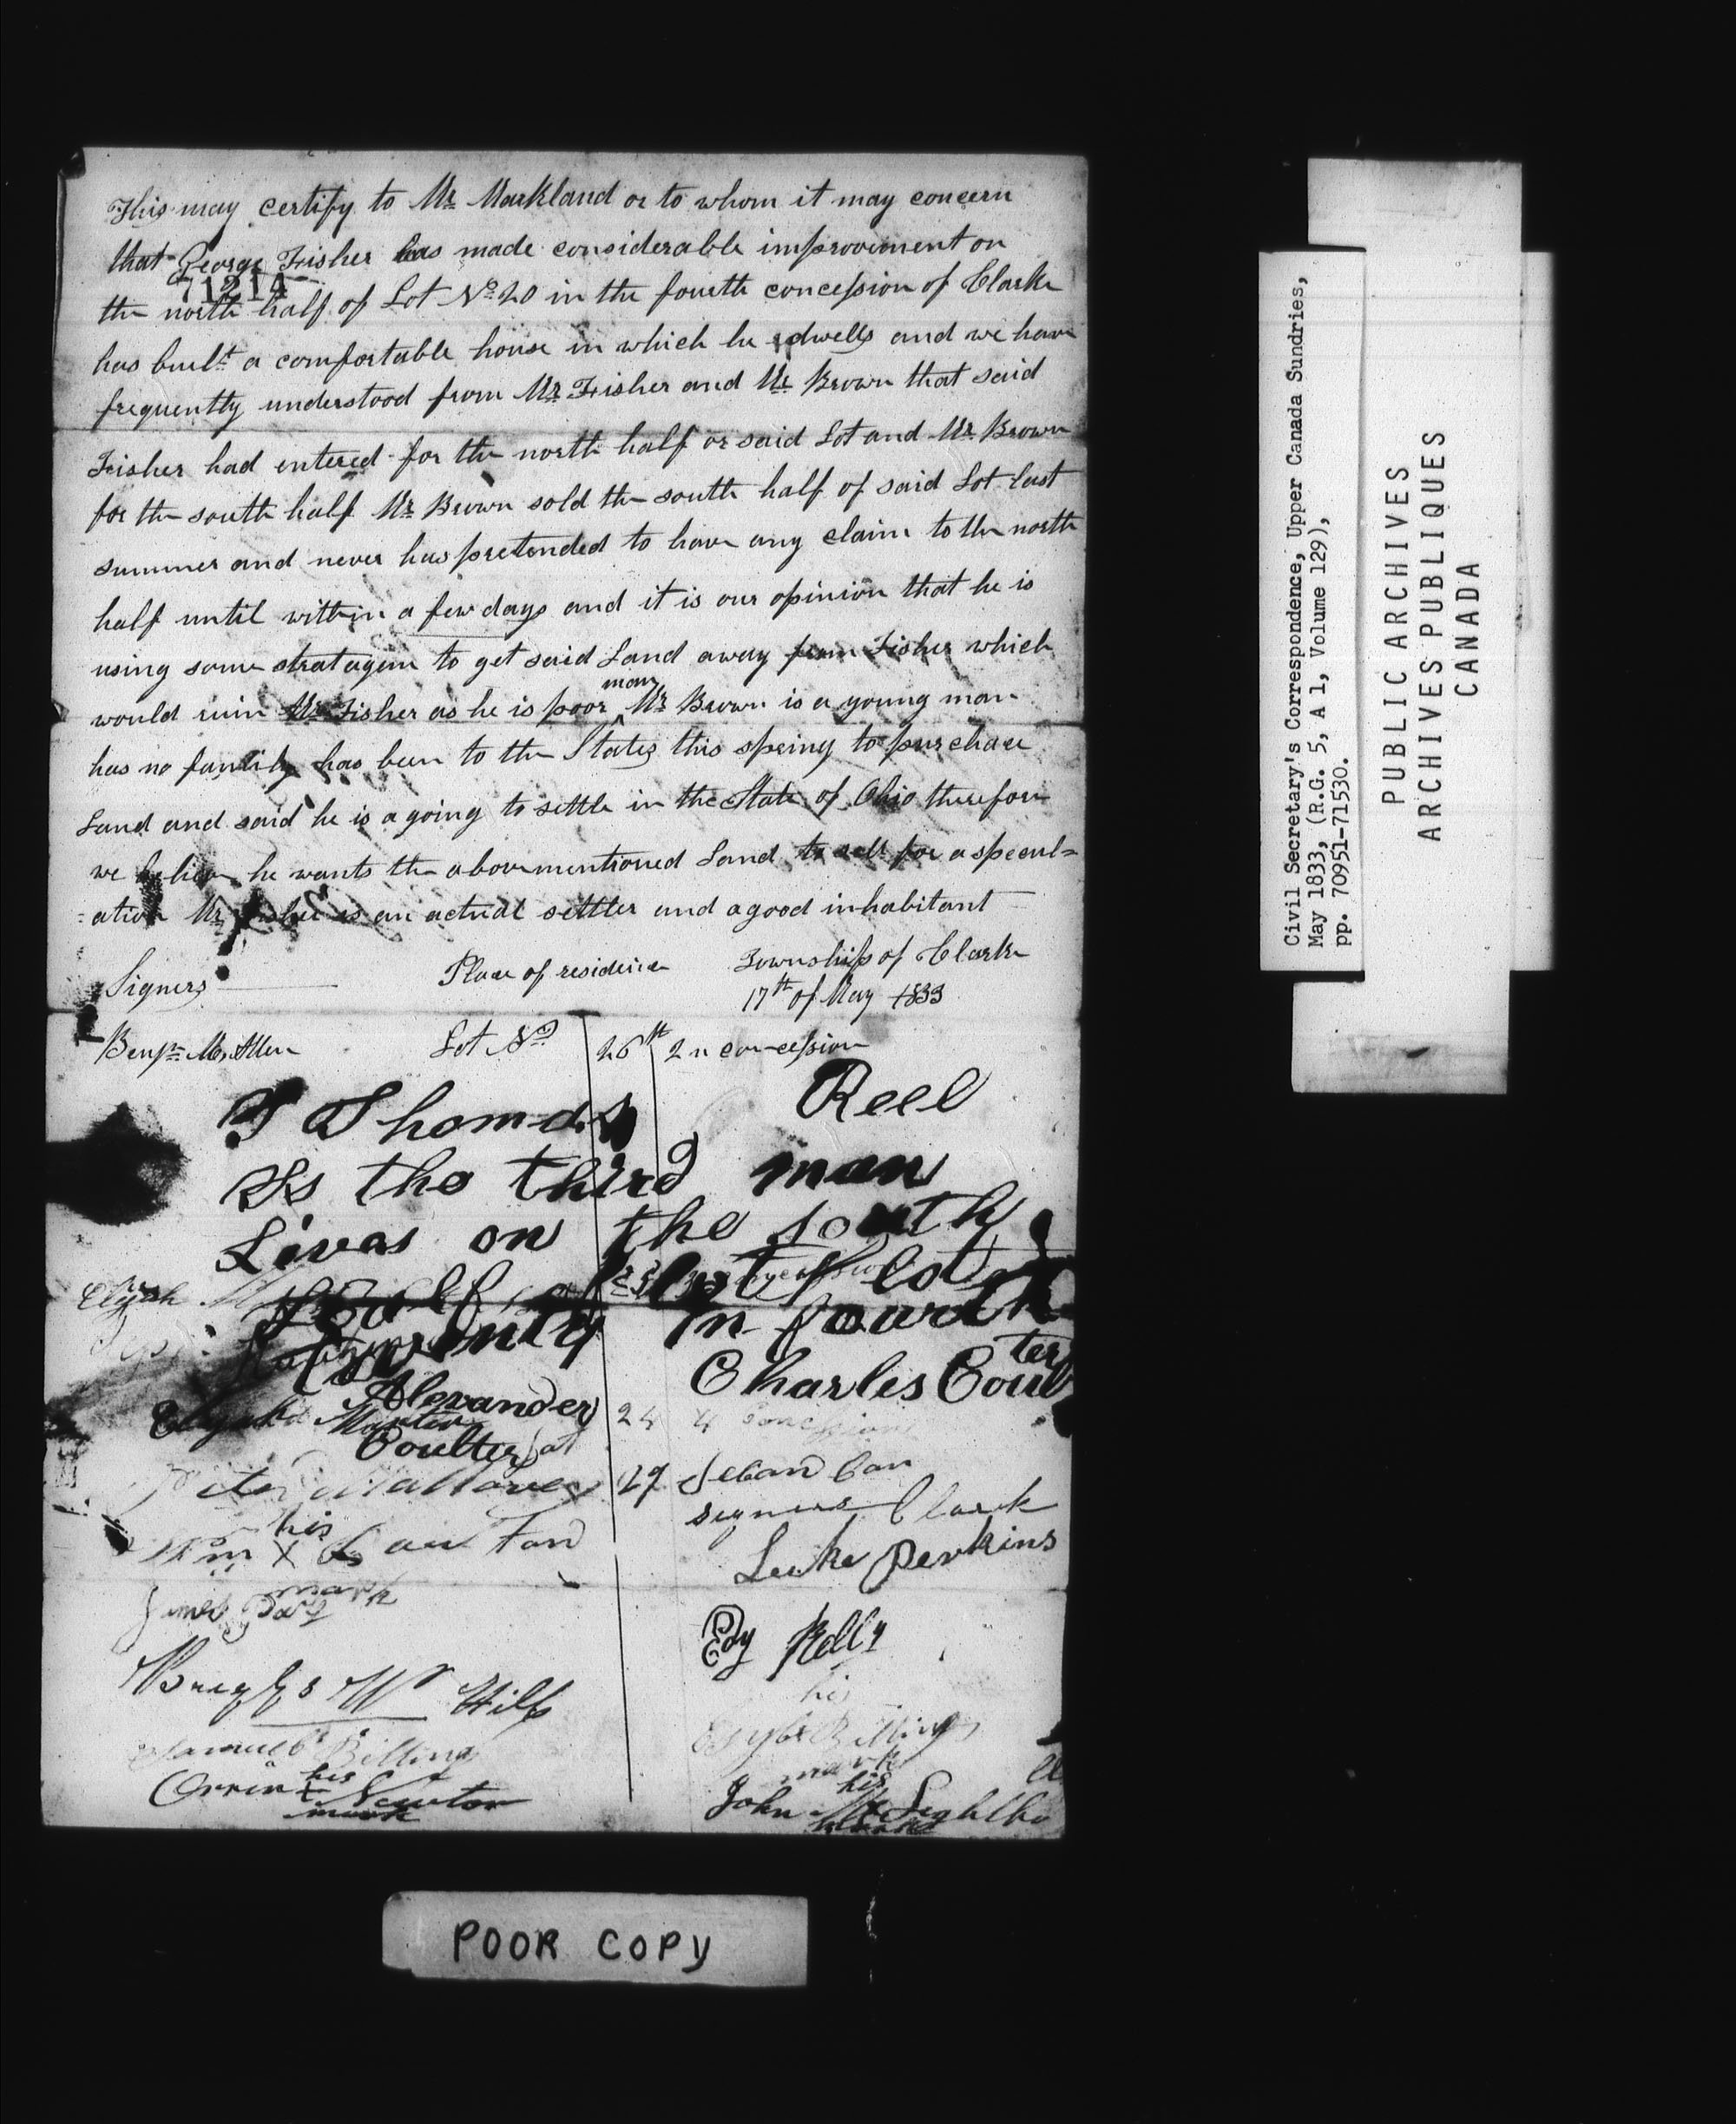 This may certify to Mr Markland or to whom it may concern
that George Fisher has made considerable improovment on
71214
the north half of Lot No 20 in the fourth concession of Clarke
has built a comfortable house in which he dwells and we have
frequently understood from Mr Fisher and Mr Brown that said
Fisher had entered for the north half or said Lot and Mr Brown
for the south half Mr Brown sold the south half of said Lot last
summer and never has pretended to have any claim to the north
half until within a few days and it is our opinion that he is
using some stratagem to get said Land away from Fisher which
would ruin Mr Fisher as he is poor man Mr Brown is a young man
has no family has been to the States this spring to purchase
Land and said he is a going to settle in the State of Ohio therefore
we believe he wants the abovementioned Land to sell for a specul=
=ation Mr Fisher is an actual settler and a good inhabitant
Signers Place of residence Township of Clarke
17th of May 1833
Benjn M. Allen Lot No 26th 2n concession
Thomas Reel
Is the third man
Lives on the south
half of lot
twenty in fourth
Charles Coulter
Alexander
Coulter
24 4 Concession
Martin
29 Second Con
signers Clark
his
Wm X
mark
Luke Perkins
James
Edy Kelly
his
Samuel Billings
mark
Orrin his X Newton
mark
John his
mark
POOR COPY
Civil Secretary's Correspondence, Upper Canada Sundries,
May 1833, (R.G. 5, A 1, Volume 129),
pp. 70951-71530.
PUBLIC ARCHIVES
ARCHIVES PUBLIQUES
CANADA